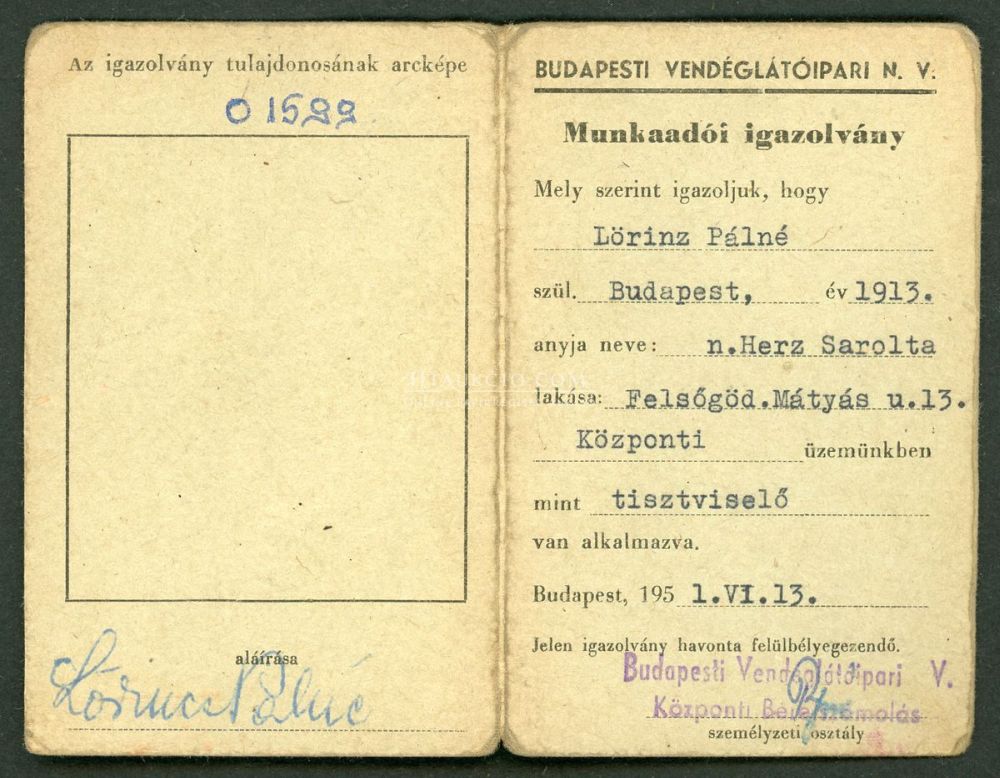 Az igazolvány tulajdonosának arcképe
01522
aláírása
Lőrincz Pálné
BUDAPESTI VENDÉGLÁTÓIPARI N. V.
Munkaadói igazolvány
Mely szerint igazoljuk, hogy
Lörinz Pálné
szül. Budapest, év 1913.
anyja neve: n.Herz Sarolta
lakása: Felsőgöd.Mátyás u.13.
Központi üzemünkben
mint tisztviselő
van alkalmazva.
Budapest, 195 1.VI.13.
Jelen igazolvány havonta felülbélyegezendő.
Budapesti Vendéglátóipari V.
Központi Bérelszámolás
személyzeti osztály